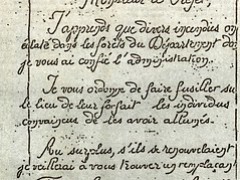 Monsieur le Préfet
J'apprends que divers incendies ont
éclaté dans les forêts du Département dont
je vous ai confié l'administration.
Je vous ordonne de faire fusiller sur
le lieu de leur forfait les individus
convaincus de les avoir allumés.
Au surplus, s'ils se renouvelaient
je veillerai à vous trouver un remplaçant